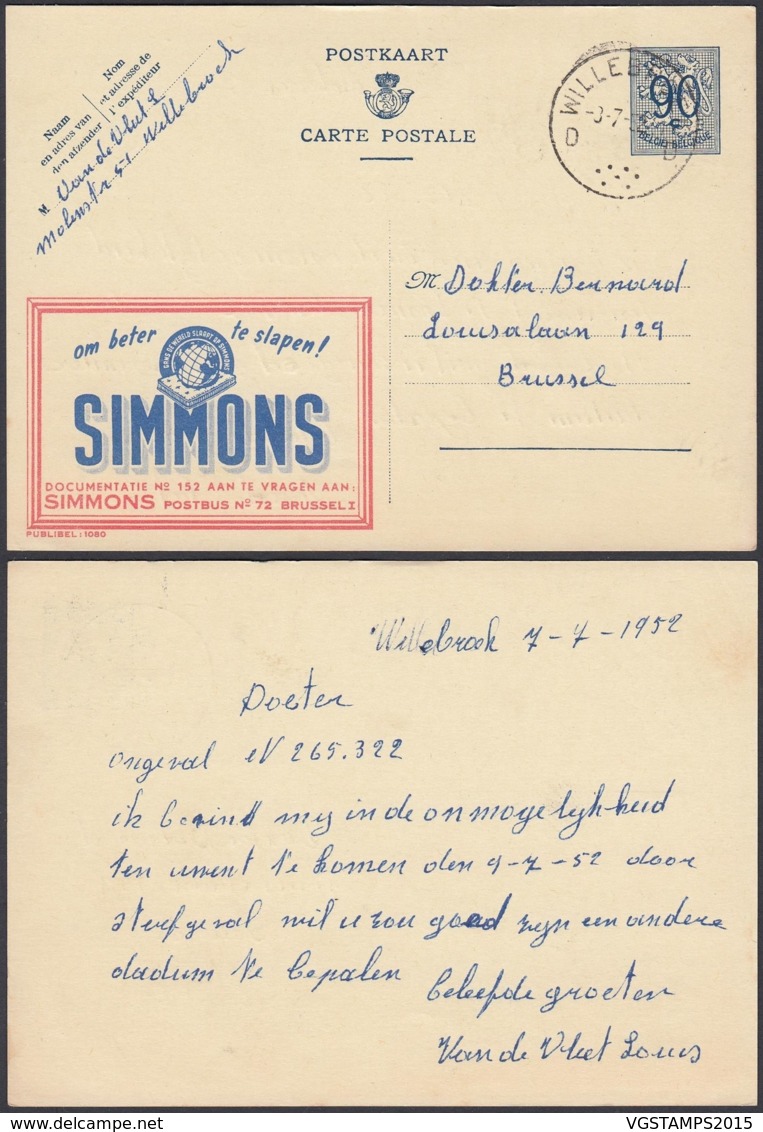 POSTKAART
CARTE POSTALE
Naam
en adres van
den afzender
Nom
et adresse de
l'expéditeur
M Van de Vliet L
Molenstr 51 Willebroek
WILLEB
-8-7-
D D
90
c
BELGIË-BELGIQUE
M Dokter Bernard
Louisalaan 129
Brussel
om beter te slapen!
GANS DE WERELD SLAAPT OP SIMMONS
SIMMONS
DOCUMENTATIE No 152 AAN TE VRAGEN AAN:
SIMMONS POSTBUS No 72 BRUSSEL I
PUBLIBEL: 1080
Willebroek 7-7-1952
Docter
ongeval N 265.322
ik bevind mij in de onmogelijkheid
ten uwent te komen den 9-7-52 door
sterfgeval wil u zou goed zijn een andere
dadum te bepalen
beleefde groeten
Van de Vliet Louis
VGSTAMPS2015